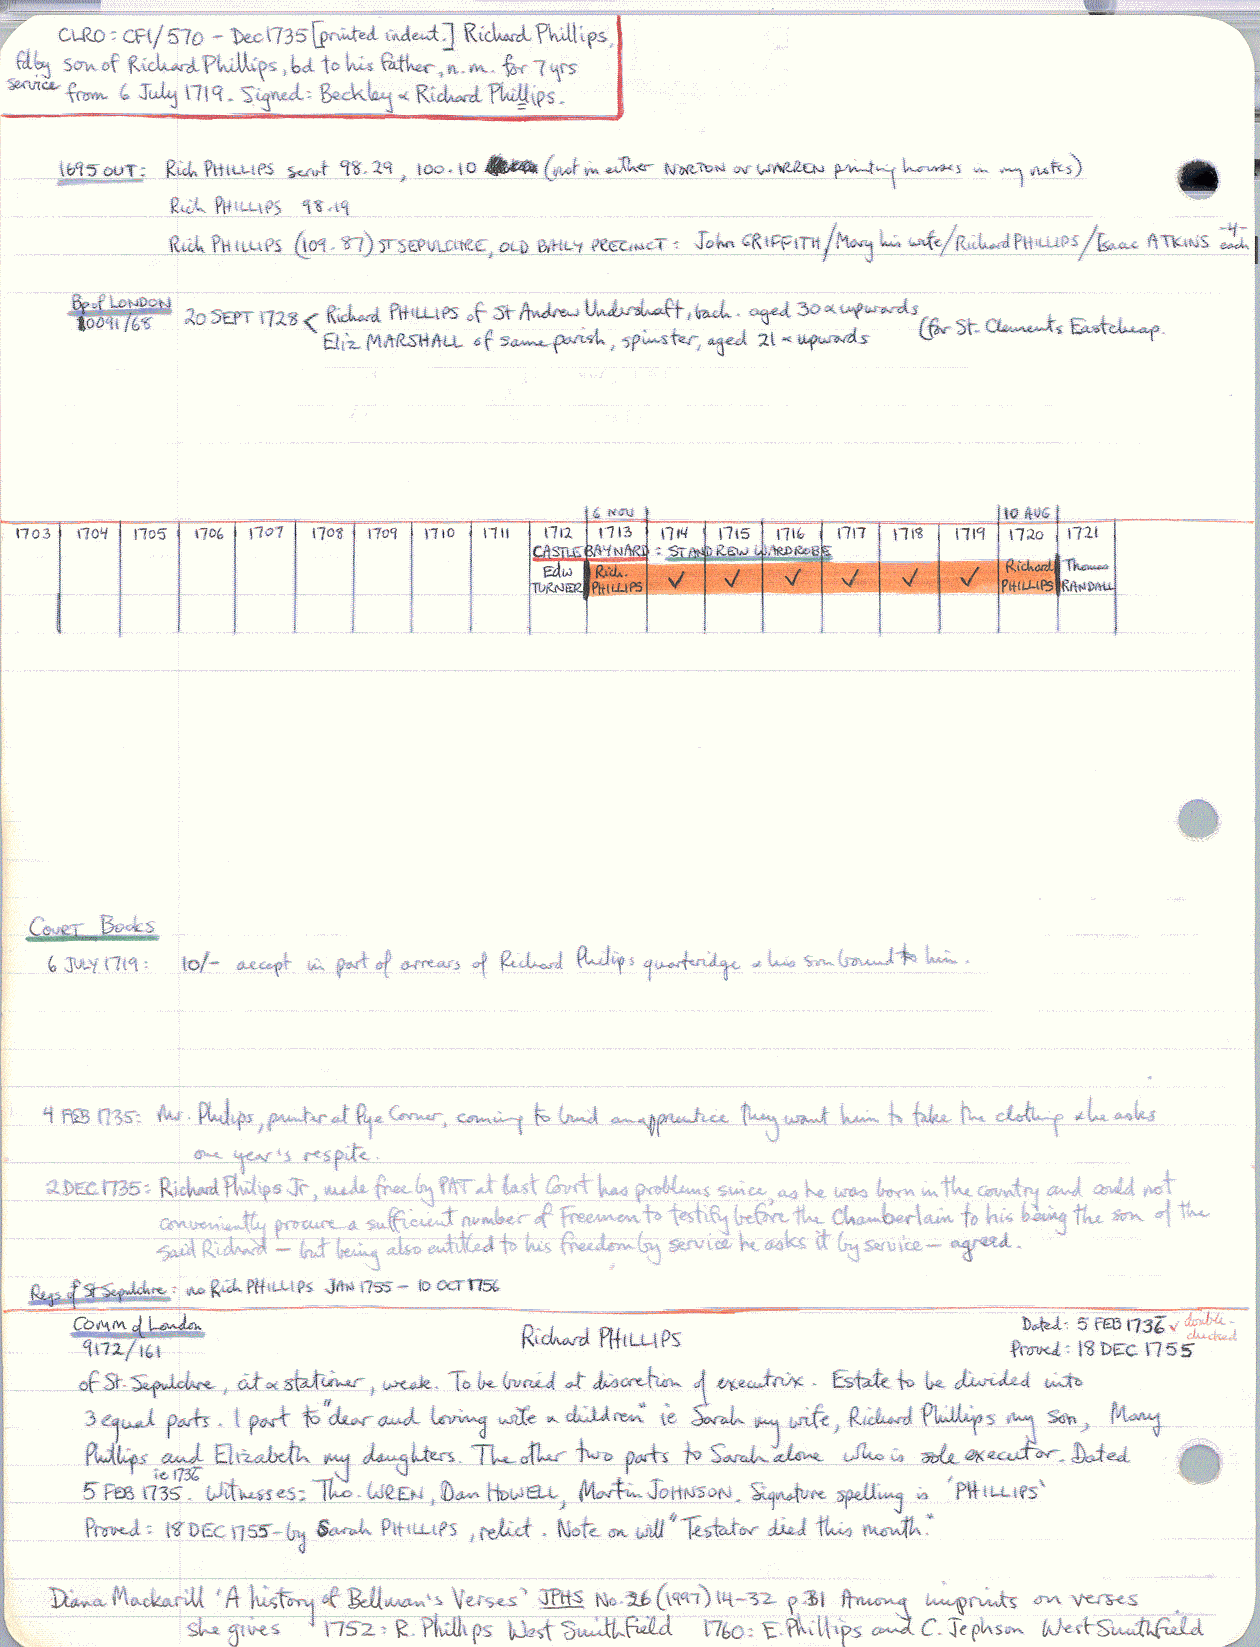 CLRO: CF1/570 - Dec 1735 [printed indent.] Richard Phillips,
fd by son of Richard Phillips, bd to his father, n.m. for 7 yrs
service from 6 July 1719. Signed: Beckley & Richard Phillips.
1695 OUT: Rich PHILLIPS servt 98.29, 100.10 (not in either NORTON or WARREN printing houses in my notes)
Rich PHILLIPS 98.19
Rich PHILLIPS (109.87) ST SEPULCHRE, OLD BAILY PRECINCT: John GRIFFITH/Mary his wife/Richard PHILLIPS/Isaac ATKINS -4- each
Bp of LONDON
10091/68
20 SEPT 1728 < Richard PHILLIPS of St Andrew Undershaft, bach. aged 30 & upwards
Eliz MARSHALL of same parish, spinster, aged 21 & upwards (for St. Clements Eastcheap.
6 NOV 10 AUG
1703 1704 1705 1706 1707 1708 1709 1710 1711 1712 1713 1714 1715 1716 1717 1718 1719 1720 1721
CASTLE BAYNARD: ST ANDREW WARDROBE
Edw Rich. ✓ ✓ ✓ ✓ ✓ ✓ Richard Thomas
TURNER PHILLIPS PHILLIPS RANDALL
COURT BOOKS
6 JULY 1719: 10/- accept in part of arrears of Richard Philips quarteridge & his son bound to him.
4 FEB 1735: Mr. Philips, printer at Pye Corner, coming to bind an apprentice they want him to take the clothing & he asks
one year's respite.
2 DEC 1735: Richard Philips Jr, made free by PAT at last Court has problems since, as he was born in the country and could not
conveniently procure a sufficient number of Freemen to testify before the Chamberlain to his being the son of the
said Richard - but being also entitled to his freedom by service he asks it by service - agreed.
Regs of St Sepulchre: no Rich PHILLIPS JAN 1755 - 10 OCT 1756
Comm of London
9172/161
Richard PHILLIPS
Dated: 5 FEB 1736 ✓ double-checked
Proved: 18 DEC 1755
of St. Sepulchre, cit & stationer, weak. To be buried at discretion of executrix. Estate to be divided into
3 equal parts. 1 part to "dear and loving wife & children" ie Sarah my wife, Richard Phillips my son, Mary
Phillips and Elizabeth my daughters. The other two parts to Sarah alone who is sole executor. Dated
ie 1736
5 FEB 1735. Witnesses: Tho. WREN, Dan HOWELL, Martin JOHNSON. Signature spelling is 'PHILLIPS'
Proved: 18 DEC 1755 - by Sarah PHILLIPS, relict. Note on will "Testator died this month."
Diana Mackarill 'A history of Bellman's Verses' JPHS No. 26 (1997) 14-32 p.31 Among imprints on verses
she gives 1752: R. Phillips West Smithfield 1760: E. Phillips and C. Jephson West Smithfield